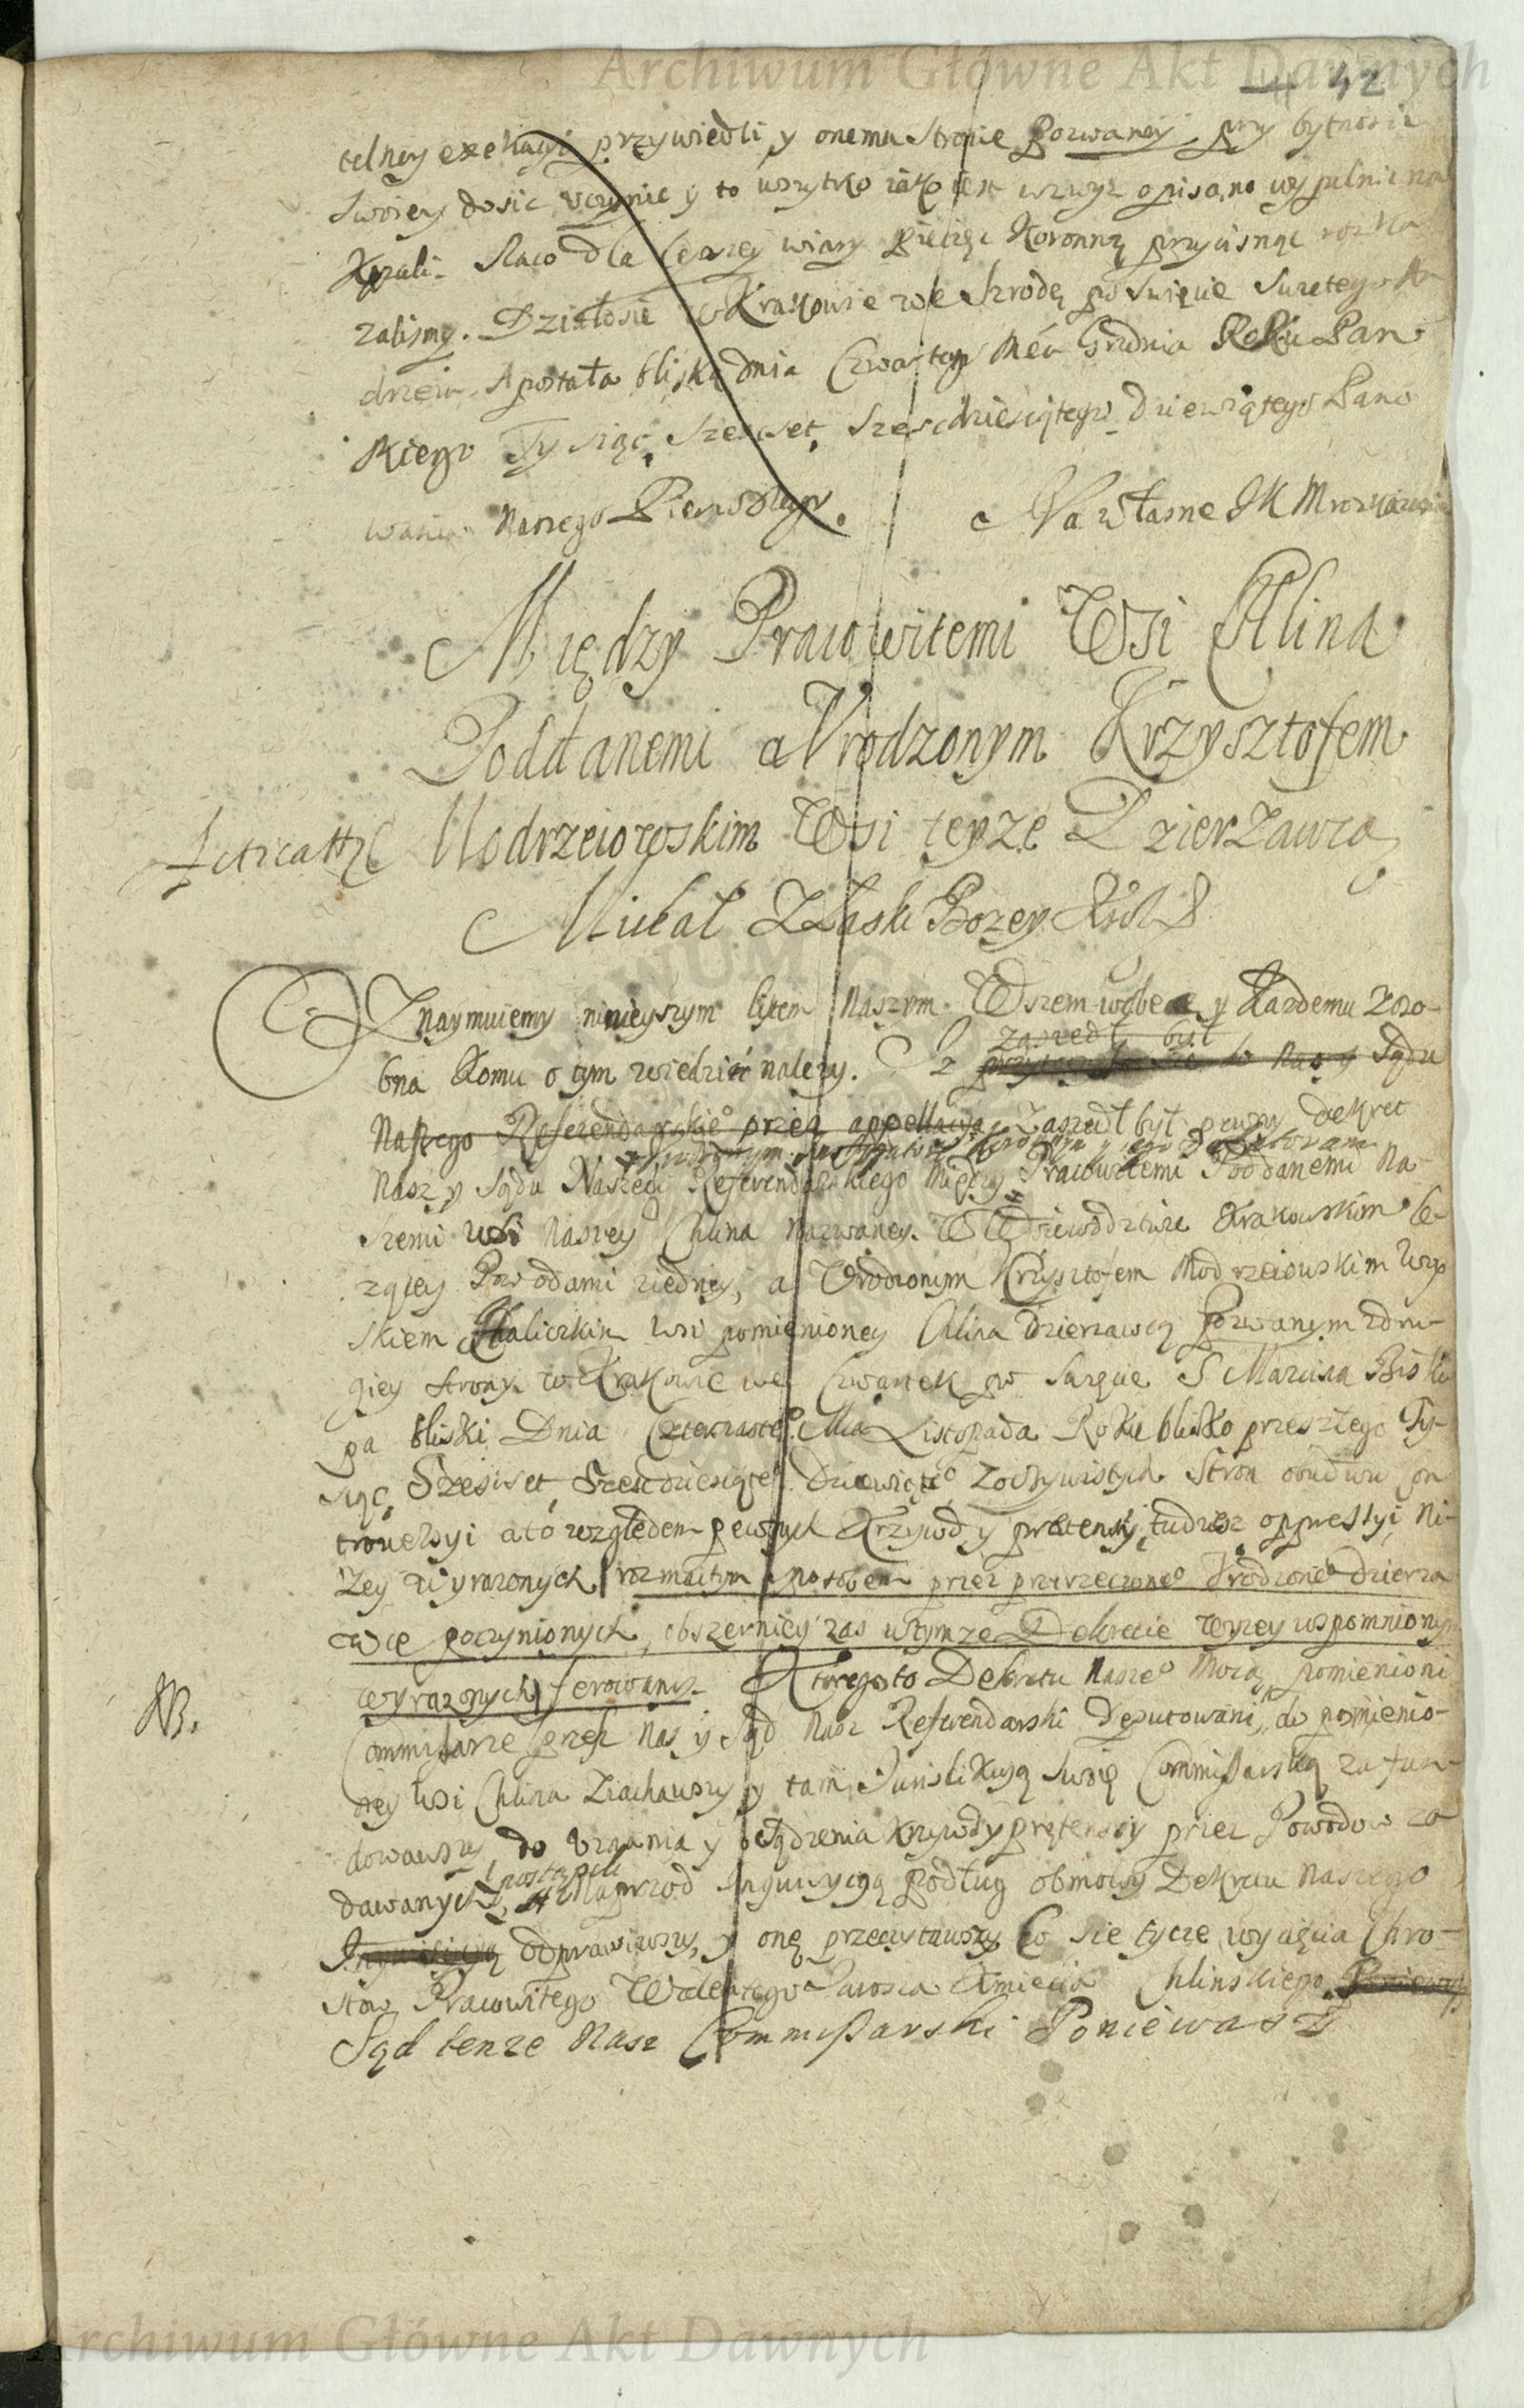 Archiwum Główne Akt Dawnych
42
telney exekucyi przywiedli y onemu stronie Pozwaney, przy bytnosci
swoiey dosic uczynic y to wszytko iako iest wzwysz opisano wypelnic na
kazali. Naco dla lepszey wiary Pieczęc Koronną przycisnąc rozka
zalismy. Działosie w Krakowie we Srzodę po Swięcie Swiętego An
drzeia Apostała bliską dnia Czwartego Mca Grudnia Roku Pan
skiego Tysiąc Szescset Szescdziesiątego Dziewiątego Pano
wania Naszego Pierwszego.
Na własne JK Mrozkazanie
Między Pracowitemi Wsi Chlina
Poddanemi a Urodzonym Krzysztofem
Modrzeiowskim Wsi teyze Dzierzawcą
Michał Z Łaski Bozey Krol &
Oznaymuiemy ninieyszym listem Naszym Wszem wobec y kazdemu zoso-
bna komu o tym wiedzieć nalezy. Iz
zaszedł był
Sądu
Naszego Referendarskiego przez appellacyą Zaszedł był pewny Dekret
Nasz y Sądu Naszego Referendarskiego między Pracowitemi Poddanemi Na-
szemi wsi Naszey Chlina Nazwaney. W Woiewodztwie Krakowskim le-
zącey Powodami ziedney, a Urodzonym Krzysztofem Modrzeiowskim Woy
skiem Haliczkim wsi pomienioney Chlina Dzierzawcą Pozwanym zdru-
giey strony w Krakowie we Czwartek po Swięcie S Marcina Bisku
pa bliski Dnia Czternastego Mca Listopada Roku blisko przeszłego Ty-
siąc Szescset Szescdziesiątego Dziewiątego Zoczywistych Stron obudwu con
trowersyi a to względem pewnych Krzywd y pretensiy tudziesz oppressyi ni-
zey wyrazonych rozmaitym sposobem przez przerzeczonego Urodzonego Dzierza
wcę poczynionych, obszerniey zas w tymze Dekrecie wyzey wspomnionym
wyrazonych ferowany. Ktoregoto Dekretu Naszego mocą pomienioni
NB.
Commissarze przez Nas y Sąd Nasz Referendarski Deputowani, do pomienio-
ney wsi Chlina Ziachawszy y tam Jurisdikcyą swoię Commissarską zafun-
dowawszy, do uznania y osądzenia krzywd y pretensiy przez Powodow za
dawanych, postąpili Naprzod Inquizycyą Podług obmowy Dekretu Naszego
Inquisicyą odprawiwszy, y onę przeczytawszy Co sie tycze wycięcia Chro-
stow Pracowitego Walentego Kmiecia Chlinskiego Poniewasz
Sąd tenze Nasz Commissarski Poniewasz
Archiwum Główne Akt Dawnych